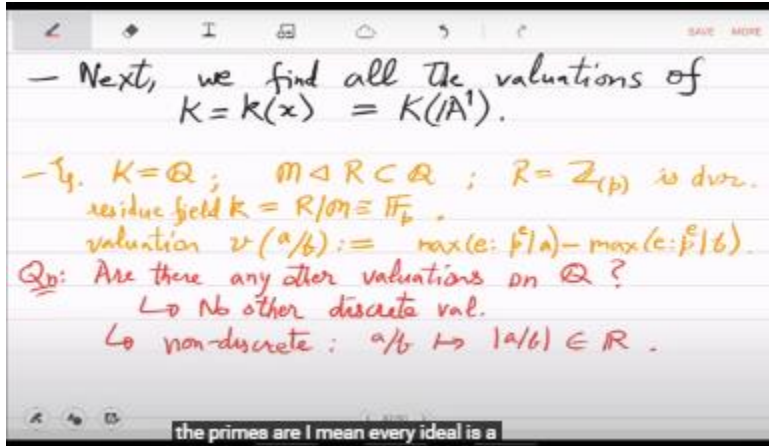 SAVE MORE
– Next, we find all the valuations of
K = k(x) = K(𝔸¹).
– Eg. K = ℚ ; m ◁ R ⊂ ℚ ; R = ℤ_(p) is dvr.
residue field k = R/m ≅ 𝔽_p .
valuation v(a/b) := max(e: p^e|a) – max(e: p^e|b).
Qn: Are there any other valuations on ℚ ?
↳ No other discrete val.
↳ non-discrete : a/b ↦ |a/b| ∈ ℝ .
the primes are I mean every ideal is a